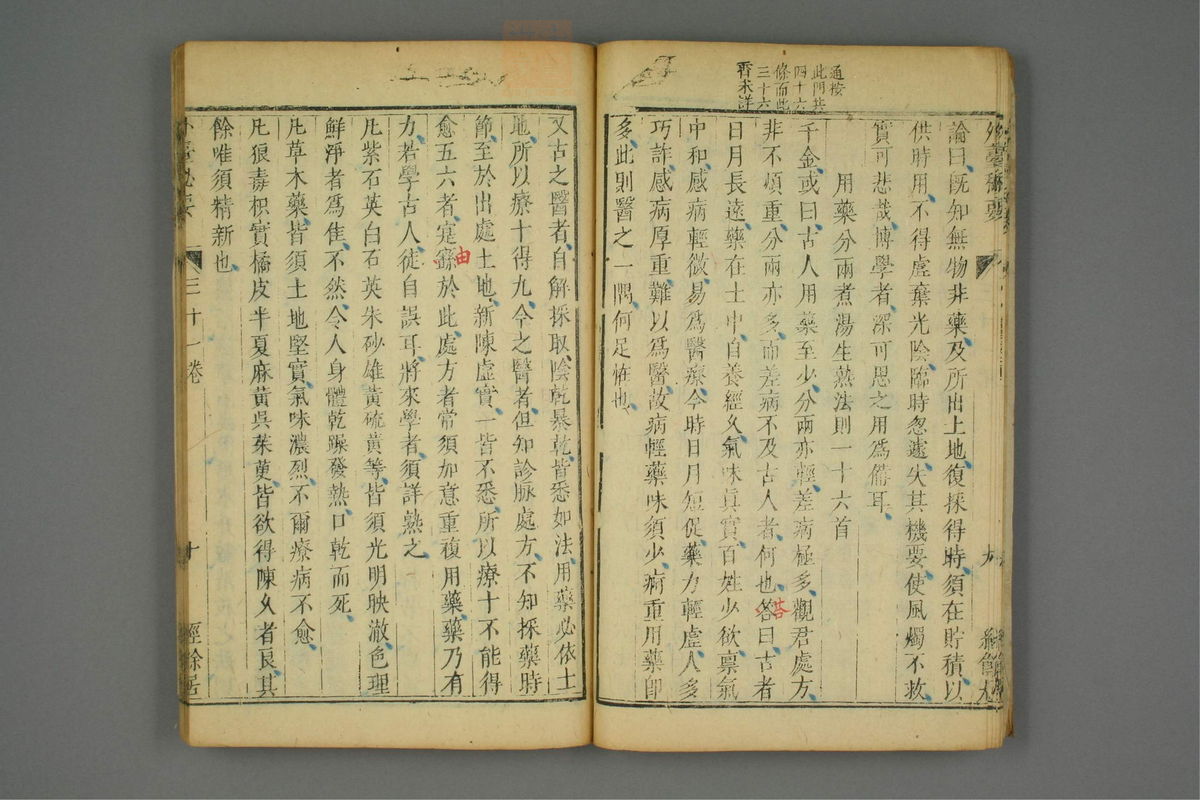 論曰既知無物非藥及所出土地復採得時須在貯積以
供時用不得虛棄光陰臨時忽遽失其機要使風燭不救
實可悲哉博學者深可思之用爲備耳
用藥分兩煮湯生熟法則一十六首
千金或曰古人用藥至少分兩亦輕差病極多觀君處方
非不煩重分兩亦多而差病不及古人者何也答曰古者
日月長遠藥在土中自養經久氣味眞實百姓少欲稟氣
中和感病輕微易爲醫療今時日月短促藥力輕虛人多
巧詐感病厚重難以爲醫故病輕藥味須少病重用藥卽
多此則醫之一隅何足恠也
通按
此門共
四十六
條而此
三十六
答
又古之醫者自解採取陰乾暴乾皆悉如法用藥必依土
地所以療十得九今之醫者但知診脉處方不知採藥時
節至於出處土地新陳虛實一皆不悉所以療十不能得
愈五六者寔繇於此處方者常須加意重複用藥藥乃有
由
力若學古人徒自誤耳將來學者須詳熟之
凡紫石英白石英朱砂雄黃硫黃等皆須光明映澈色理
鮮淨者爲佳不然令人身體乾躁發熱口乾而死
凡草木藥皆須土地堅實氣味濃烈不爾療病不愈
凡狼毒枳實橘皮半夏麻黃吳茱萸皆欲得陳久者良其
餘唯須精新也
三十一卷
十
經餘居